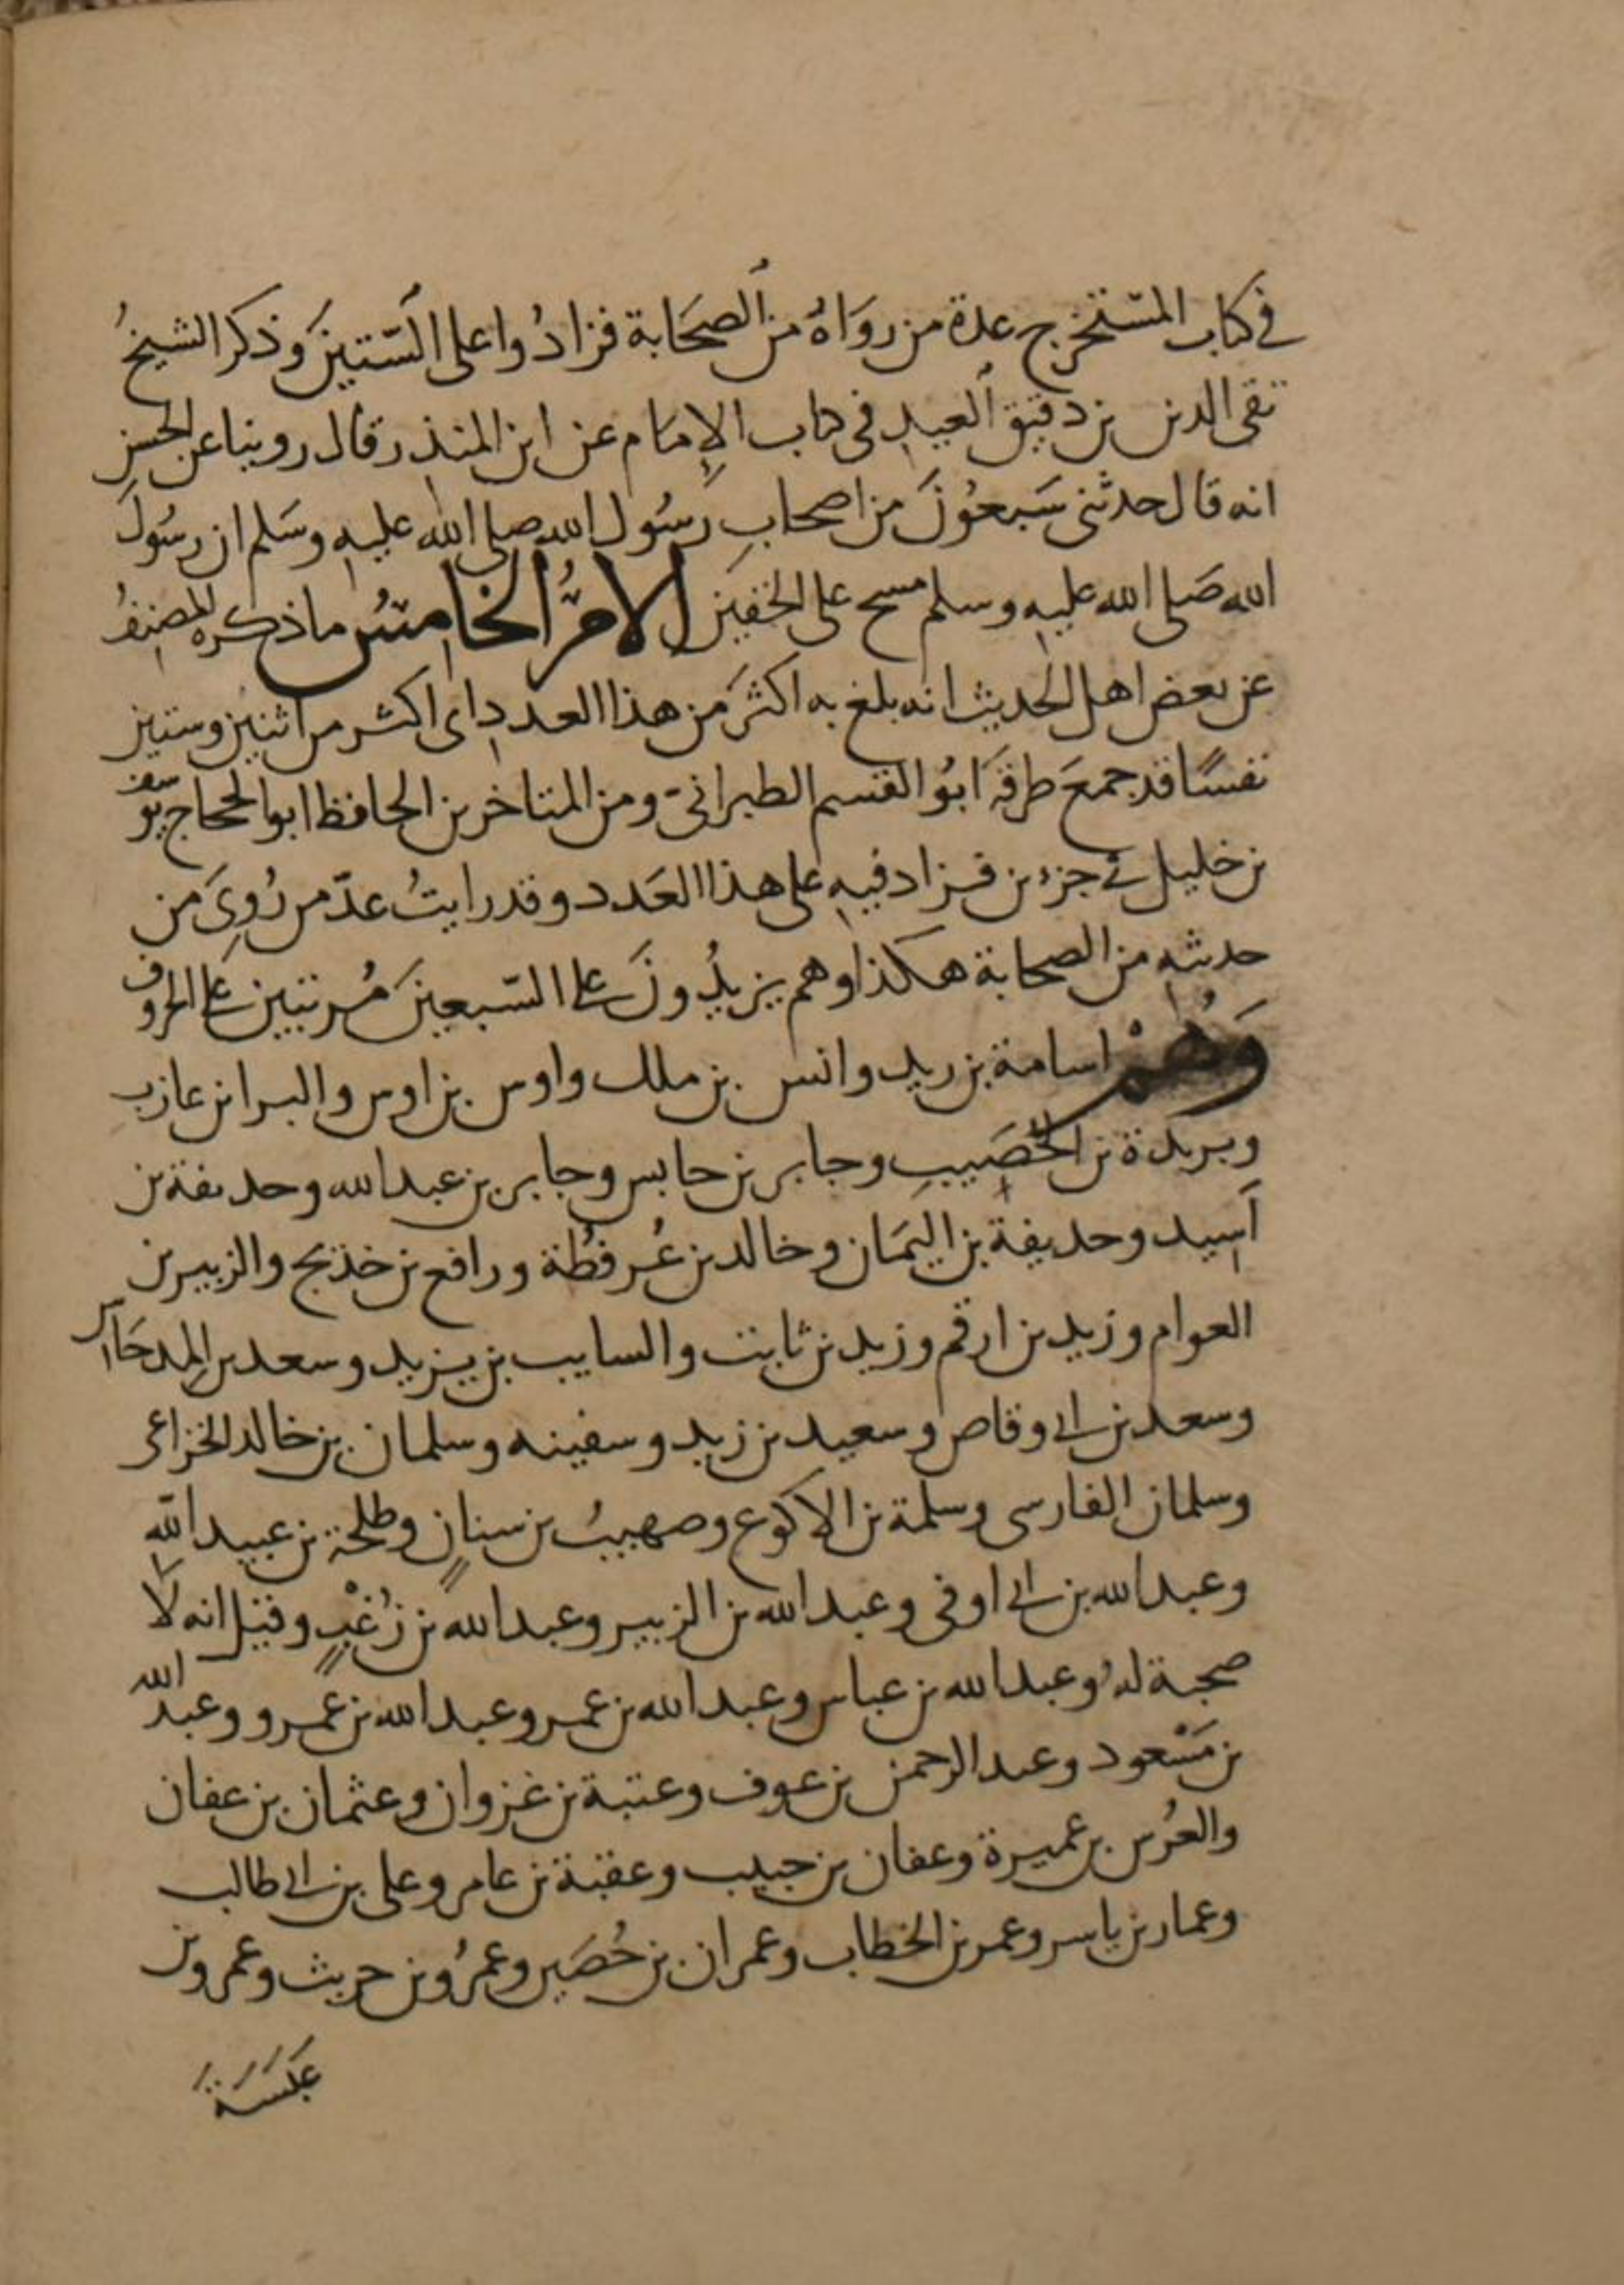 في كتاب المستخرج عدة من رواه من الصحابة فزادوا على الستين وذكر الشيخ
تقى الدين بن دقيق العيد في كتاب الإمام عن ابن المنذر قال روينا عن الحسن
انه قال حدثنى سبعون من اصحاب رسول الله صلى الله عليه وسلم ان رسول
الله صلى الله عليه وسلم مسح على الخفين الامر الخامس ما ذكره المصنف
عن بعض اهل الحديث انه بلغ به اكثر من هذا العدد اى اكثر من اثنين وستين
نفسا قد جمع طرقه ابو القسم الطبرانى ومن المتاخرين الحافظ ابو الحجاج يوسف
بن خليل في جزءين فزاد فيه على هذا العدد وقد رايت عد من روى من
حديثه من الصحابة هكذا وهم يزيدون على السبعين مرتبين على الحروف
وهم اسامة بن زيد وانس بن ملك واوس بن اوس والبرا بن عازب
وبريدة بن الحصيب وجابر بن حابس وجابر بن عبد الله وحذيفة بن
اسيد وحذيفة بن اليمان وخالد بن عرفطة ورافع بن خديج والزبير بن
العوام وزيد بن ارقم وزيد بن ثابت والسايب بن يزيد وسعد بن المدحاس
وسعد بن ابى وقاص وسعيد بن زيد وسفينه وسلمان بن خالد الخزاعى
وسلمان الفارسى وسلمة بن الاكوع وصهيب بن سنان وطلحة بن عبيد الله
وعبد الله بن ابى اوفى وعبد الله بن الزبير وعبد الله بن زغب وقيل انه لا
صحبة له وعبد الله بن عباس وعبد الله بن عمر وعبد الله بن عمرو وعبد الله
بن مسعود وعبد الرحمن بن عوف وعتبة بن غزوان وعثمان بن عفان
والعرس بن عميرة وعفان بن حبيب وعقبة بن عامر وعلى بن ابى طالب
وعمار بن ياسر وعمر بن الخطاب وعمران بن حصين وعمرو بن حريث وعمرو بن
عبسة